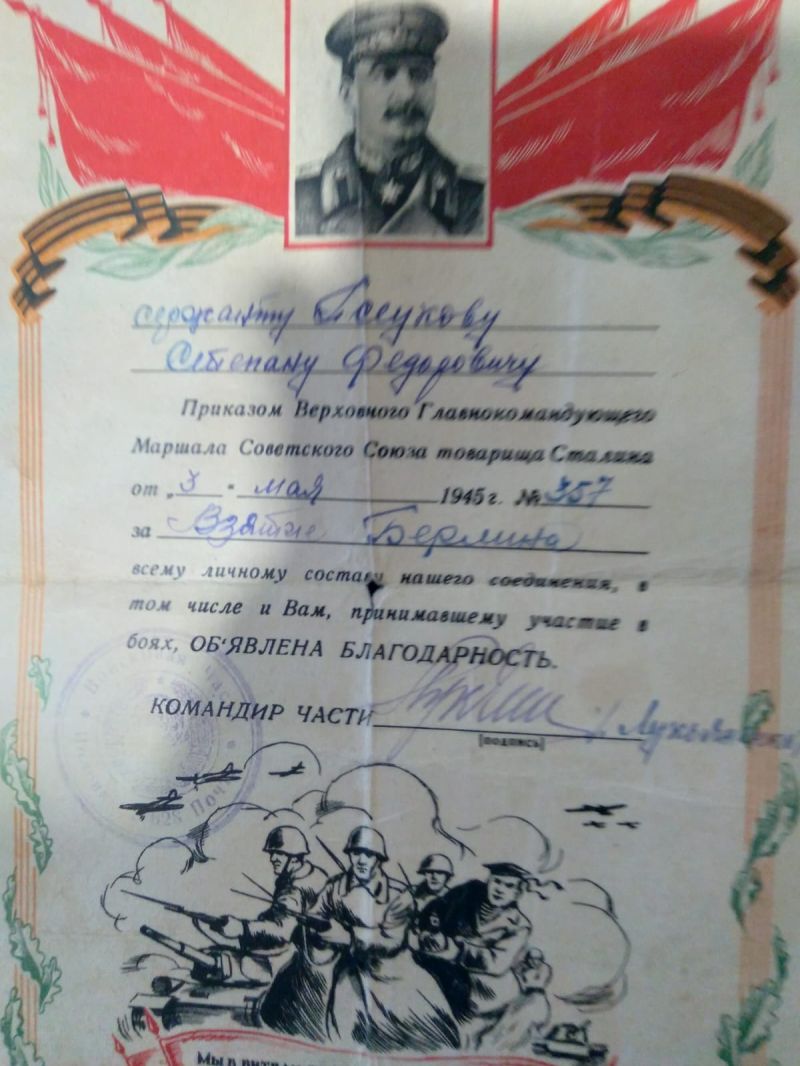 сержанту Псеукову
Степану Федоровичу
Приказом Верховного Главнокомандующего
Маршала Советского Союза товарища Сталина
от „3" мая 1945 г. № 357
за Взятие Берлина
всему личному составу нашего соединения, в
том числе и Вам, принимавшему участие в
боях, ОБ'ЯВЛЕНА БЛАГОДАРНОСТЬ.
КОМАНДИР ЧАСТИ
(подпись)
Мы в